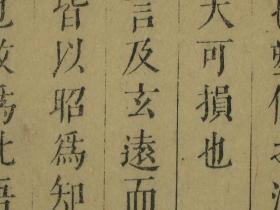 大可損也
言及玄遠而
皆以昭爲知
也故爲此語